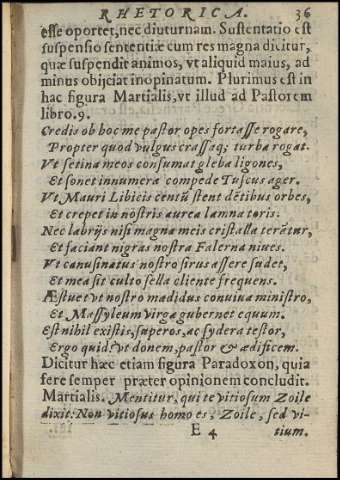 RHETORICA. 36
esse oportet, nec diuturnam. Sustentatio est
suspensio sententiæ cum res magna dicitur,
quæ suspendit animos, vt aliquid maius, ad
minus obijciat inopinatum. Plurimus est in
hac figura Martialis, vt illud ad Pastorem
libro.9.
Credis ob hoc me pastor opes fortasse rogare,
Propter quod vulgus crassaq; turba rogat.
Vt setina meos consumat gleba ligones,
Et sonet innumera compede Tuscus ager.
Vt Mauri Libicis centũ stent dẽtibus orbes,
Et crepet in nostris aurea lamna toris.
Nec labrijs nisi magna meis cristalla terãtur,
Et faciant nigras nostra Falerna niues.
Vt canusinatus nostro sirus assere sudet,
Et mea sit culto sella cliente frequens.
Æstuet vt nostro madidus conuiua ministro,
Et Massyleum virga gubernet equum.
Est nihil ex istis, superos, ac sydera testor,
Ergo quid? vt donem, pastor & ædificem.
Dicitur hæc etiam figura Paradoxon, quia
fere semper præter opinionem concludit.
Martialis. Mentitur, qui te vitiosum Zoile
dixit: Non vitiosus homo es, Zoile, sed vi-
E 4 tium.